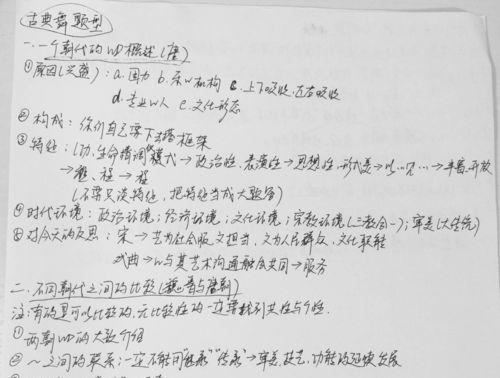 古典舞题型
一.一个朝代的WD概述(唐)
①原因(兴盛):a.国力 b.乐W机构 c.上下吸收,左右吸收
d.专业W人 e.文化形态
②构成:你们自己写下去搭框架
③特征:功,生命情调 模式→政治性,表演性→思想性,形式美→以…见…→丰富,开放
(不要只谈特征,把特征当成大题答)
④时代环境:政治环境;经济环境;文化环境;宗教环境(三教合一);审美(大传统)
⑤对今天的反思:宋→艺为社会服 文担当,文为人民群众,文化职能
戏曲→W与其艺术沟通融合共同→服务
二.不同朝代之间的比较(魏晋与唐朝)
注:有的是可以比较的,无比较性的一定要找到共性与个性.
①两朝WD的大致介绍
②~之间的联系:一定不能用"继承""传承"→审美,技艺,功能的延续发展